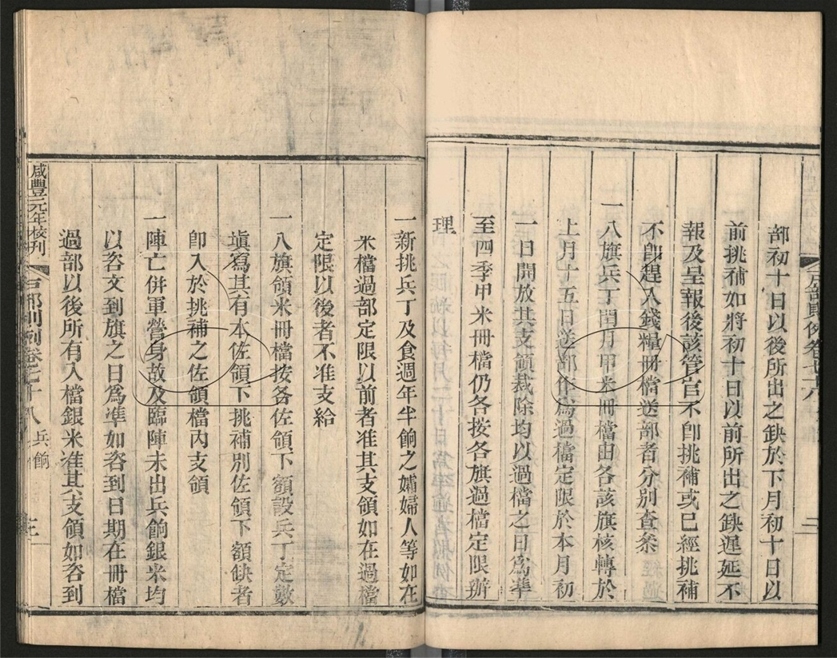 戶部則例卷七十八
部初十日以後所出之缺於下月初十日以
前挑補如將初十日以前所出之缺遲延不
報及呈報後該管官不卽挑補或已經挑補
不卽趕入錢糧冊檔送部者分別查叅
一八旗兵丁閏月甲米冊檔由各該旗核轉於
上月十五日送部作爲過檔定限於本月初
一日開放其支領裁除均以過檔之日爲準
至四季甲米冊檔仍各按各旗過檔定限辦
理
一新挑兵丁及食週年半餉之孀婦人等如在
米檔過部定限以前者准其支領如在過檔
定限以後者不准支給
一八旗領米冊檔按各佐領下額設兵丁定數
塡寫其有本佐領下挑補別佐領下額缺者
卽入於挑補之佐領檔內支領
一陣亡併軍營身故及臨陣未出兵餉銀米均
以咨文到旗之日爲準如咨到日期在冊檔
過部以後所有入檔銀米准其支領如咨到
咸豐元年校刊
戶部則例卷七十八 兵餉